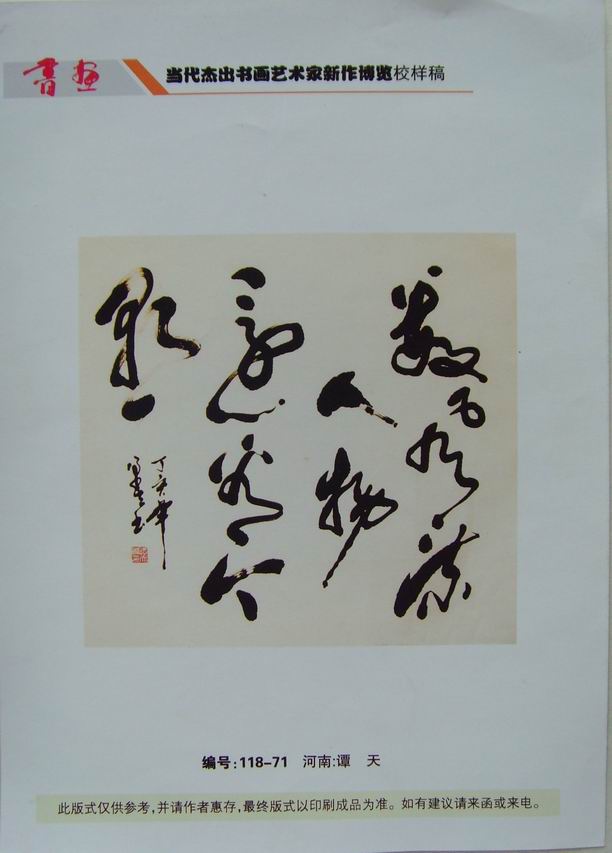 書画
当代杰出书画艺术家新作博览校样稿
数风流
人物
还看今
朝
丁亥年
编号:118-71 河南:谭 天
此版式仅供参考,并请作者惠存,最终版式以印刷成品为准。如有建议请来函或来电。